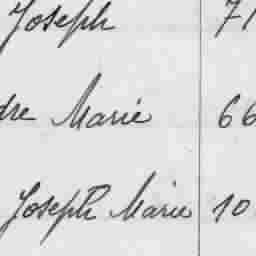 Joseph 71
dre Marie 66
Joseph Marie 10